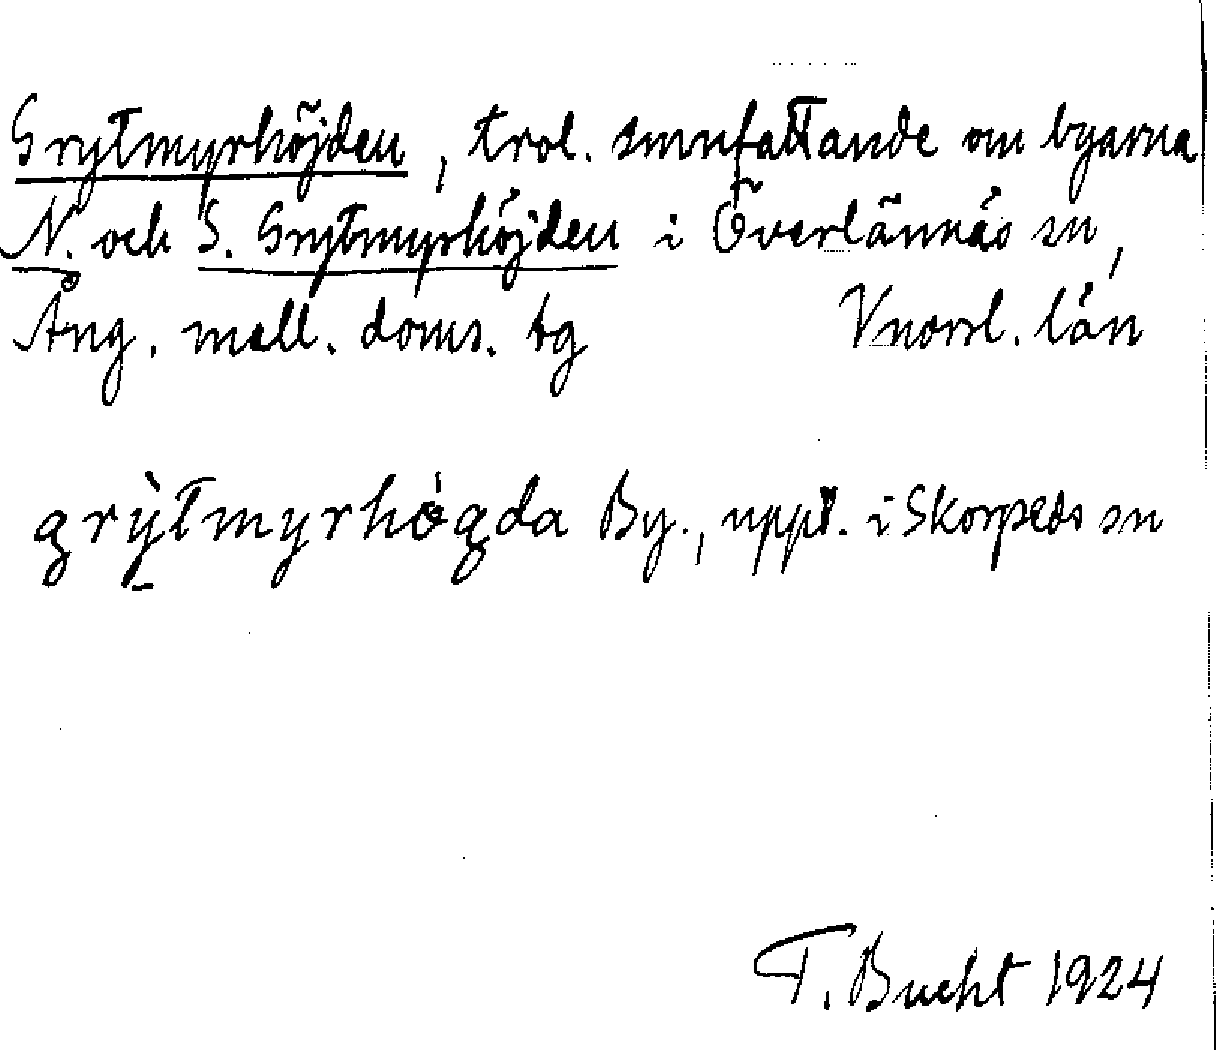 Grytmyrhöjden, trol. smnfattande om byarna
N. och S. Grytmyrhöjden i Överlännäs sn,
Ång. mell. doms. tg Vnorrl. län
grỳtmyrhögda By., uppt. i Skorpeds sn
T. Bucht 1924